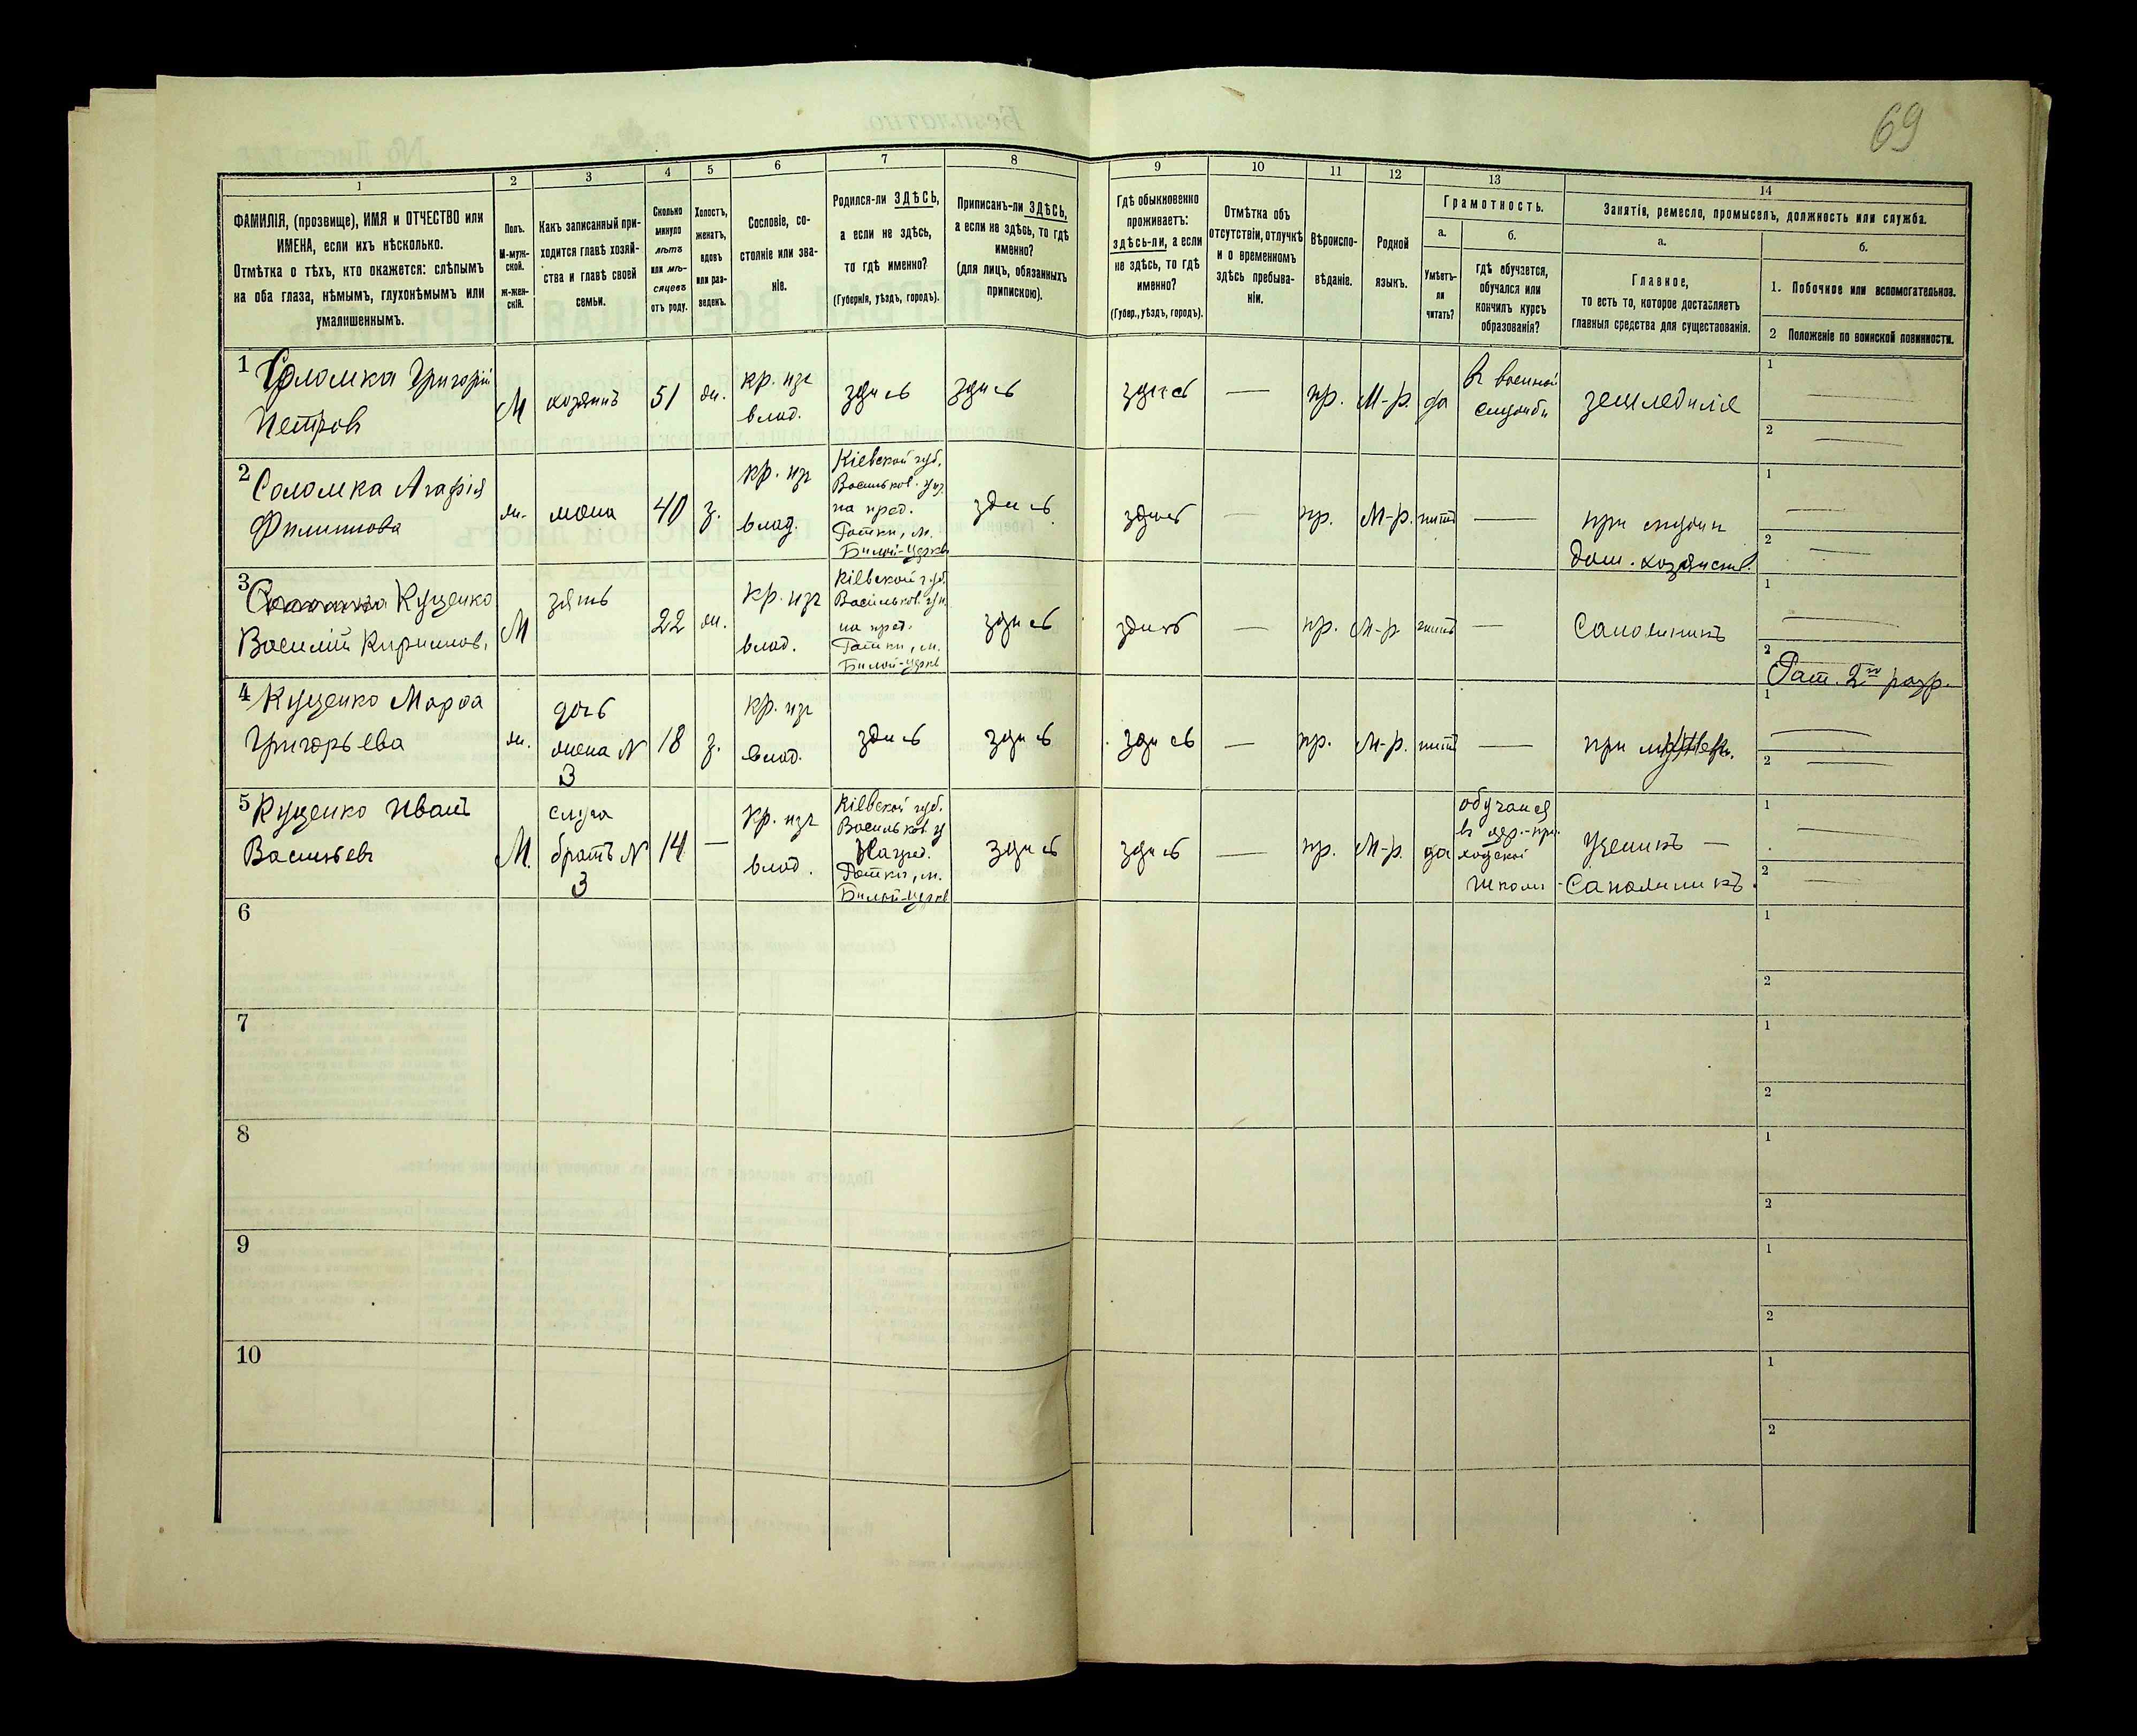 69
1
2
3
4
5
6
7
8
9
10
11
12
13
14
ФАМИЛІЯ, (прозвище), ИМЯ и ОТЧЕСТВО или
ИМЕНА, если ихъ нѣсколько.
Отмѣтка о тѣхъ, кто окажется: слѣпымъ
на оба глаза, нѣмымъ, глухонѣмымъ или
умалишеннымъ.
Полъ.
М-муж-
ской.
Ж-жен-
скій.
Какъ записанный при-
ходится главѣ хозяй-
ства и главѣ своей
семьи.
Сколько
минуло
лѣтъ
или мѣ-
сяцевъ
отъ роду.
Холостъ,
женатъ,
вдовъ
или раз-
веденъ.
Сословіе, со-
стояніе или зва-
ніе.
Родился-ли ЗДѢСЬ,
а если не здѣсь,
то гдѣ именно?
(Губернія, уѣздъ, городъ).
Приписанъ-ли ЗДѢСЬ,
а если не здѣсь, то гдѣ
именно?
(для лицъ, обязанныхъ
припискою).
Гдѣ обыкновенно
проживаетъ:
здѣсь-ли, а если
не здѣсь, то гдѣ
именно?
(Губер., уѣздъ, городъ).
Отмѣтка объ
отсутствіи, отлучкѣ
и о временномъ
здѣсь пребыва-
ніи.
Вѣроиспо-
вѣданіе.
Родной
языкъ.
Грамотность.
а.
Умѣетъ-
ли
читать?
б.
гдѣ обучается,
обучался или
кончилъ курсъ
образованія?
Занятія, ремесло, промыселъ, должность или служба.
а.
Главное,
то есть то, которое доставляетъ
главныя средства для существованія.
б.
1. Побочное или вспомогательное.
2 Положеніе по воинской повинности.
1 Соломка Григорій
Петровъ
М
хозяинъ
51
ж.
кр. изъ
влад.
здись
здись
здись
—
пр.
М-р.
да
въ военной
службѣ
земледиліе
1
2
2 Соломка Агафія
Филипова
ж.
жена
40
з.
кр. изъ
влад.
Кіевской губ.
Васильков. уѣз.
на пред.
Ротки, м.
Билой-Церкв
здись
здись
—
пр.
М-р.
нитъ
—
при мужи и
дом. хозяиств.
1
2
3 Куценко
Василій Кирилов.
М
зять
22
ж.
кр. изъ
влад.
Кіевской губ.
Васильков. уѣз.
на пред.
Ротки, м.
Билой-Церкв
здись
здись
—
пр.
М-р.
нитъ
—
Сапожникъ
1
2
Рат. 2го разр.
4 Куценко Марфа
Григорьева
ж.
дочь
жена №
3
18
з.
кр. изъ
влад.
здись
здись
здись
—
пр.
М-р.
нитъ
—
при
1
2
5 Куценко Иванъ
Васильевъ
М.
слуга
братъ №
3
14
—
кр. изъ
влад.
Кіевской губ.
Васильков. у
На пред.
Ротки, м.
Билой-Церкв
здись
здись
—
пр.
М-р.
да
обучался
въ цер.-при-
ходской
школи
ученикъ —
Сапожникъ.
1
2
6
1
2
7
1
2
8
1
2
9
1
2
10
1
2